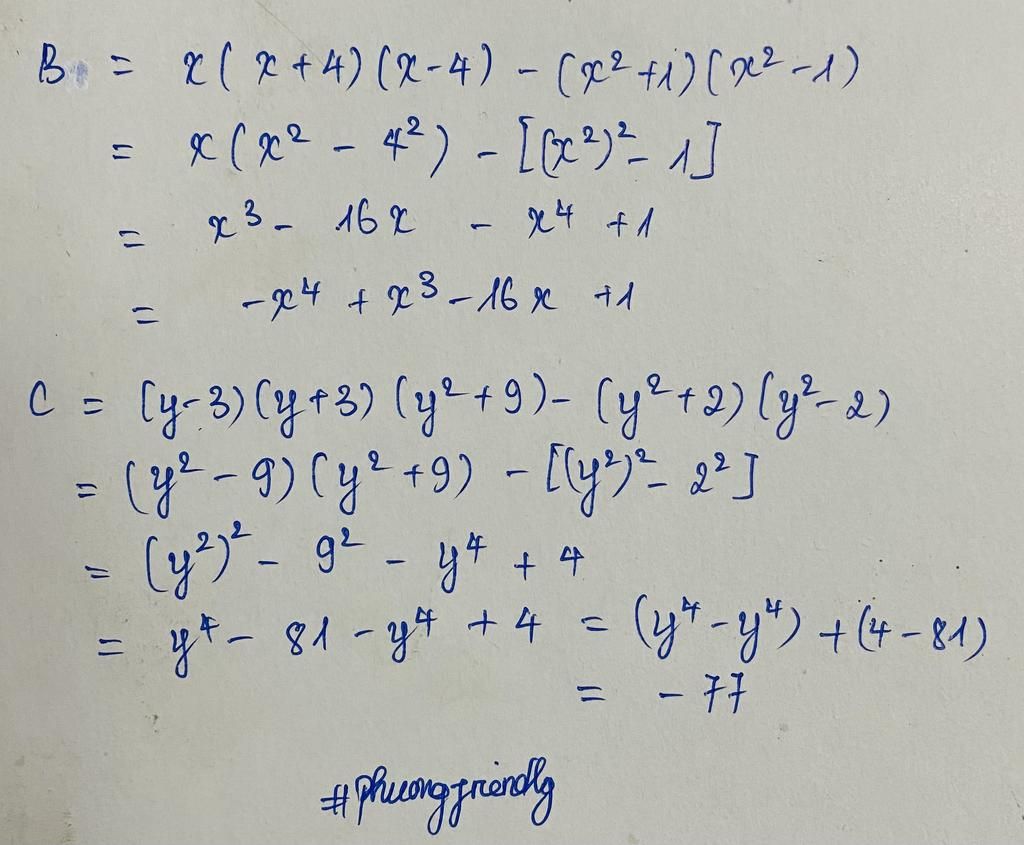 B = x(x+4)(x-4) - (x²+1)(x²-1)
= x(x² - 4²) - [(x²)² - 1]
= x³ - 16x - x⁴ + 1
= -x⁴ + x³ - 16x + 1
C = (y-3)(y+3)(y²+9) - (y²+2)(y²-2)
= (y² - 9)(y² + 9) - [(y²)² - 2²]
= (y²)² - 9² - y⁴ + 4
= y⁴ - 81 - y⁴ + 4 = (y⁴ - y⁴) + (4 - 81)
= -77
#phuongfriendly